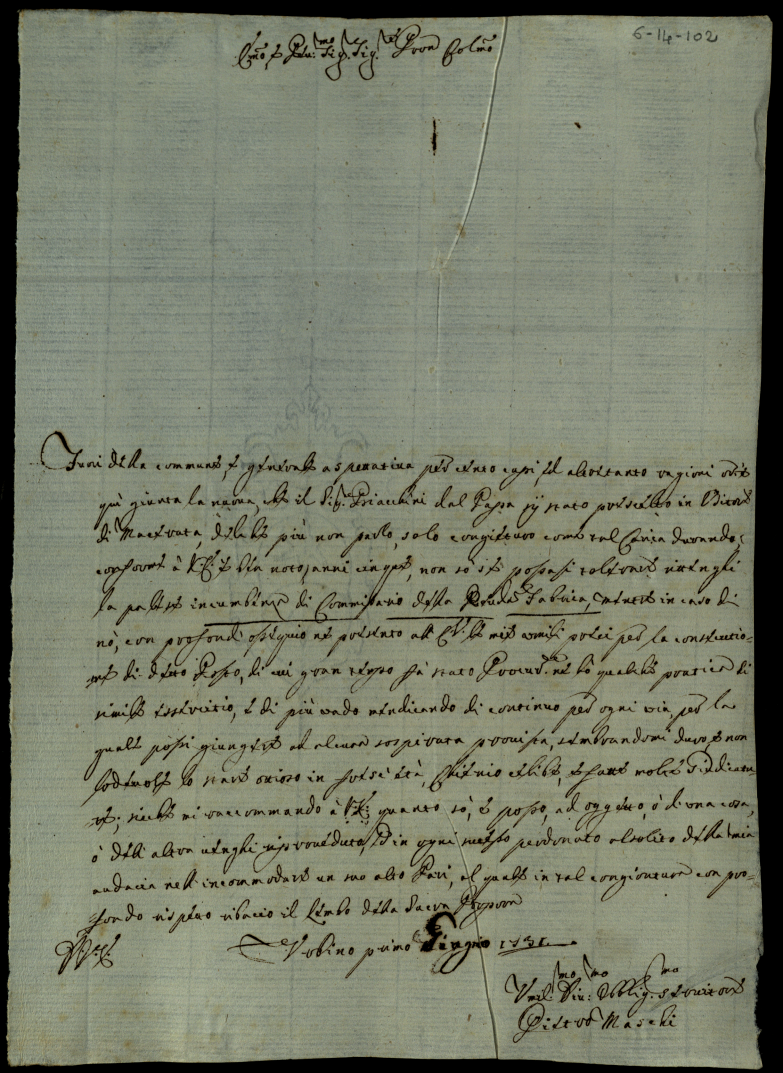 6-14-102
Emo, e Rev.mo Sig.r Sig.r Pron Colmo
Fuori della commune, e generale aspettativa per cento capi, ed altrettanto ragioni
quì giunta la nuova, che il Sig. Priacchini dal Papa sij stato prescelto in Uditore
di Macerata, del che più non parlo, solo congetturo come tal Carica durando,
conforme à V.E. è ben noto, anni cinque, non sò se possasi tolerare venghi
la patente incumbenza di Commissario della Reveda Fabrica, mentre in caso di
nò, con profondi ossequio ne presento all' E.V. le mie umili preci per la consecutio-
ne di detto Posto, di cui gran tempo fà stato Procur.re ne hò qualche prattica di
simile essercitio, e di più vado mendicando di continuo per ogni via, per la
quale possi giungere ad alcuna sospirata provista, sembrandomi duro, e non
lodevole lo stare otioso in fresca età, Celibe, e fatte molte
re; sicche mi raccommando à V.E. quanto sò, e posso, ad oggetto, ò di una cosa,
ò dell' altra venghi proveduto, ed in ogni successo perdonato al solito della mia
audacia nell' incommodare un suo alto Pari, al quale in tal congiontura con pro-
fondo rispetto ribacio il Lembo della Sacra Porpora
Urbino primo Giugno 1731
Umil.mo Div.mo Obblig.mo Servitore
Pietro Maschi